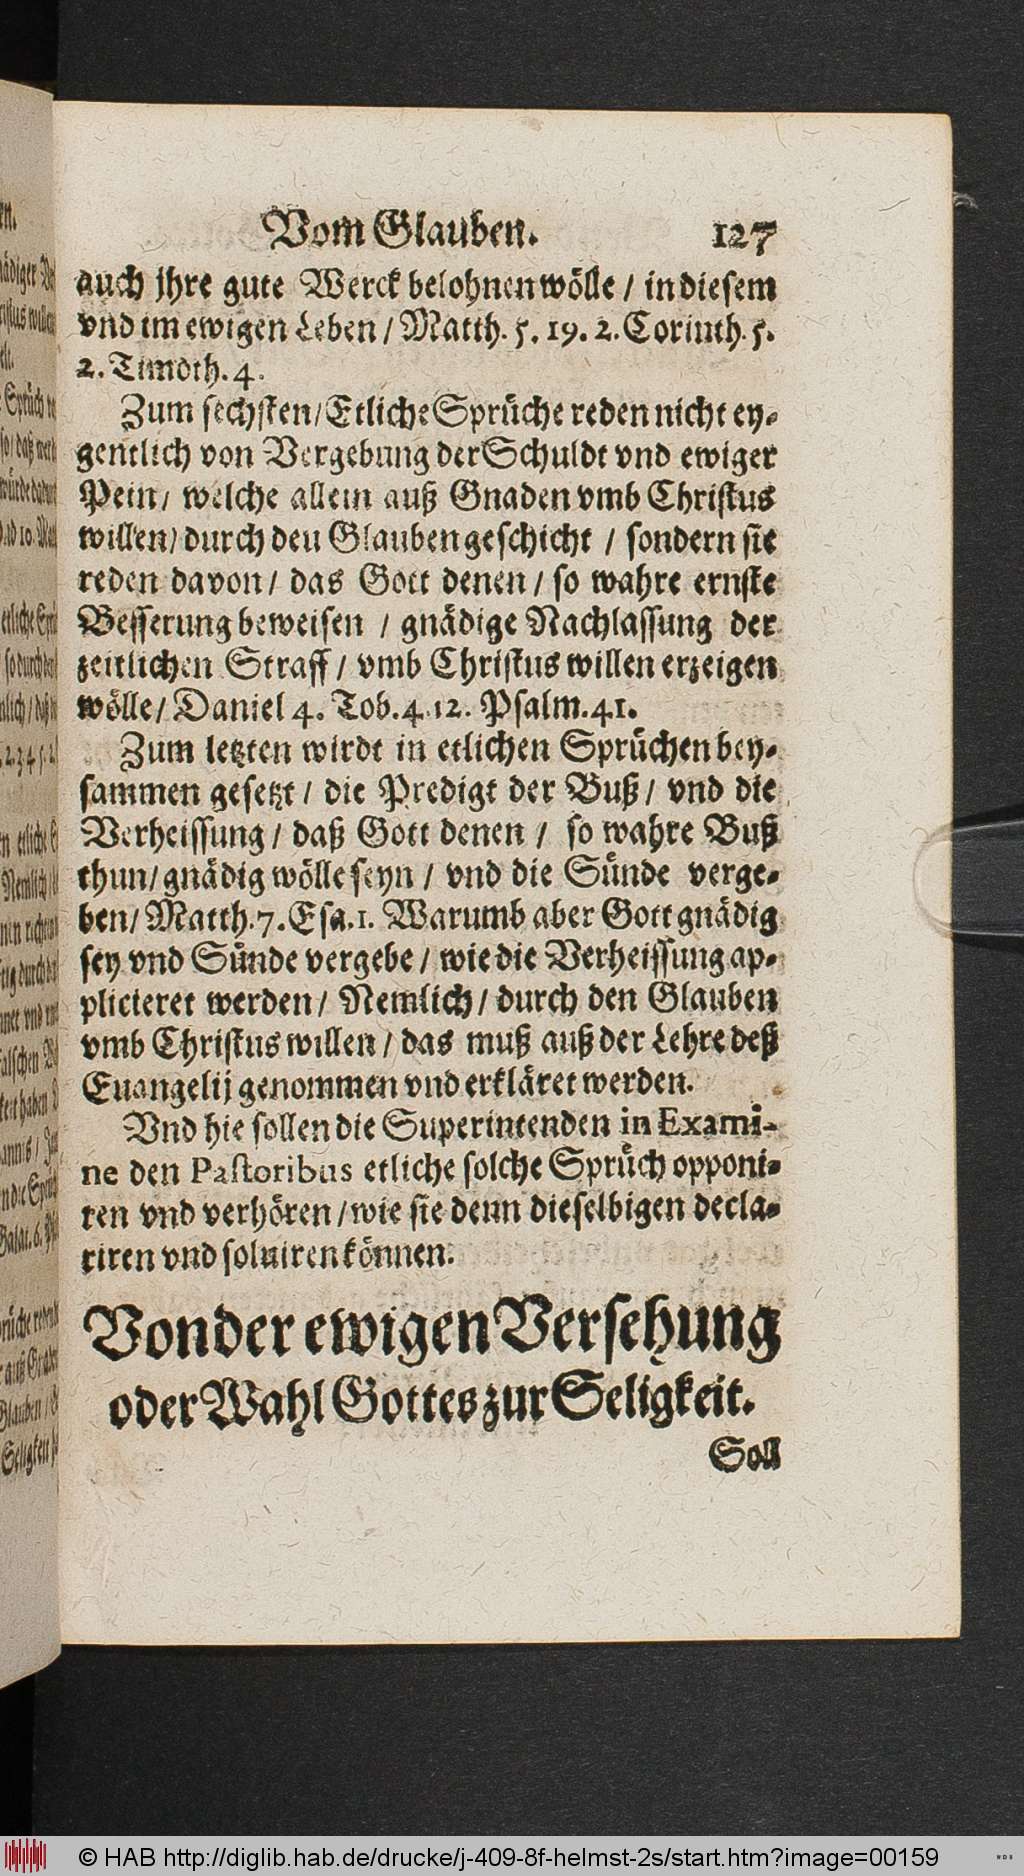 Vom Glauben. 127
auch jhre gute Werck belohnen wölle / in diesem
vnd im ewigen Leben / Matth. 5. 19. 2. Corinth. 5.
2. Timoth. 4.
Zum sechsten / Etliche Sprüche reden nicht ey-
gentlich von Vergebung der Schuldt vnd ewiger
Pein / welche allein auß Gnaden vmb Christus
willen / durch den Glauben geschicht / sondern sie
reden davon / das Gott denen / so wahre ernste
Besserung beweisen / gnädige Nachlassung der
zeitlichen Straff / vmb Christus willen erzeigen
wölle / Daniel 4. Tob. 4. 12. Psalm. 41.
Zum letzten wirdt in etlichen Sprüchen bey-
sammen gesetzt / die Predigt der Buß / vnd die
Verheissung / daß Gott denen / so wahre Buß
thun / gnädig wölle seyn / vnd die Sünde verge-
ben / Matth. 7. Esa. 1. Warumb aber Gott gnädig
sey vnd Sünde vergebe / wie die Verheissung ap-
plicieret werden / Nemlich / durch den Glauben
vmb Christus willen / das muß auß der Lehre deß
Euangelij genommen vnd erkläret werden.
Vnd hie sollen die Superintenden in Exami-
ne den Pastoribus etliche solche Sprüch opponi-
ren vnd verhören / wie sie denn dieselbigen decla-
riren vnd soluiren können.
Von der ewigen Versehung
oder Wahl Gottes zur Seligkeit.
Soll
© HAB http://diglib.hab.de/drucke/j-409-8f-helmst-2s/start.htm?image=00159